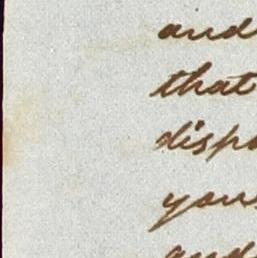 and
that
dispo
your
and